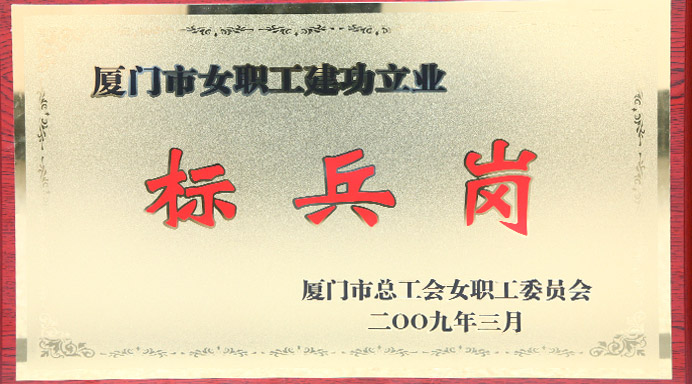 厦门市女职工建功立业
标兵岗
厦门市总工会女职工委员会
二〇〇九年三月